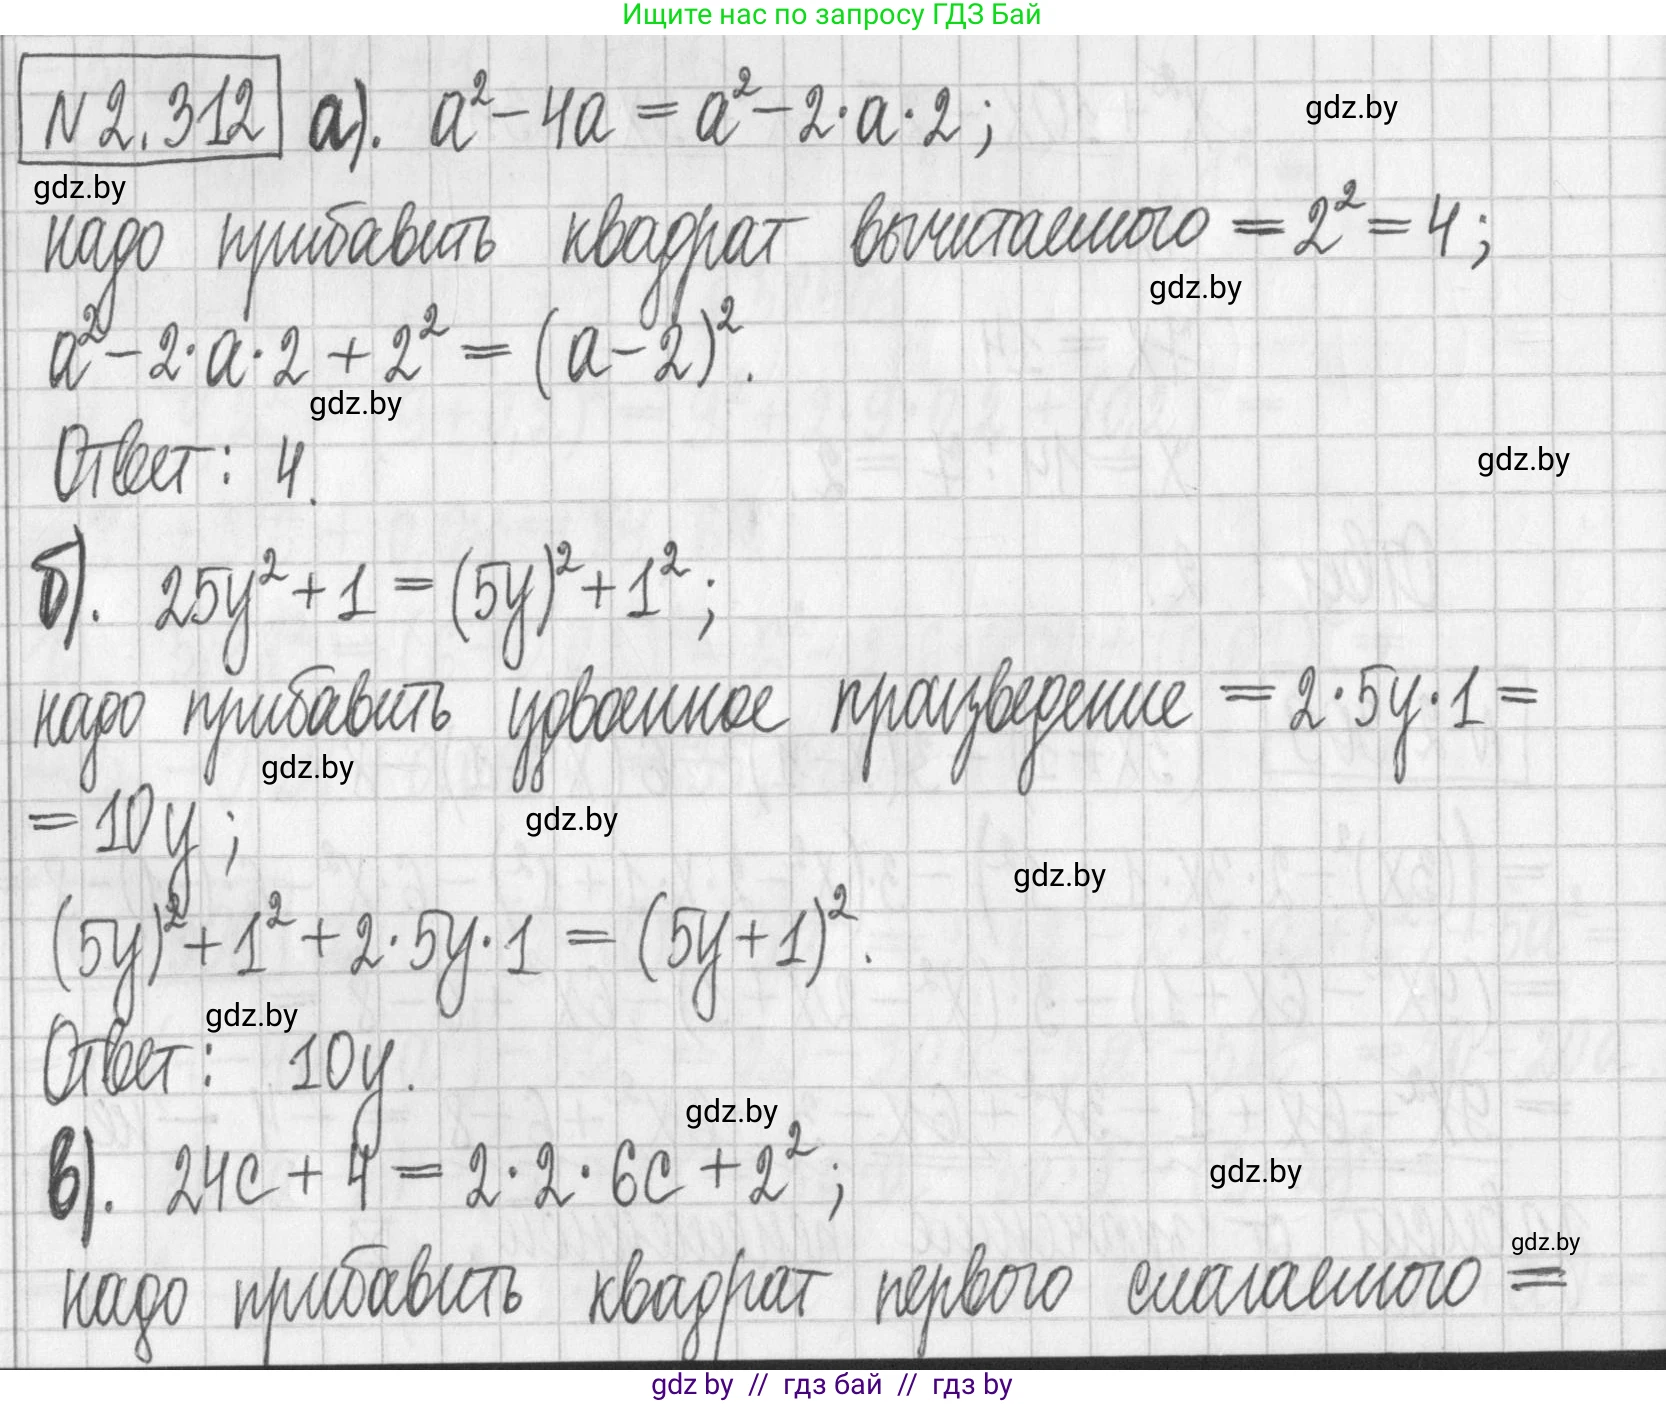 Ищите нас по запросу ГДЗ Бай
N 2.312 а). a² - 4a = a² - 2·a·2;
gdz.by
gdz.by
надо прибавить квадрат вычитаемого = 2² = 4;
gdz.by
a² - 2·a·2 + 2² = (a - 2)².
gdz.by
Ответ: 4.
gdz.by
б). 25y² + 1 = (5y)² + 1²;
надо прибавить удвоенное произведение = 2·5y·1 =
gdz.by
= 10y;
gdz.by
gdz.by
(5y)² + 1² + 2·5y·1 = (5y + 1)².
gdz.by
Ответ: 10y.
gdz.by
в). 24c + 4 = 2·2·6c + 2²;
gdz.by
gdz.by
надо прибавить квадрат первого слагаемого =
gdz by // гдз бай // гдз by